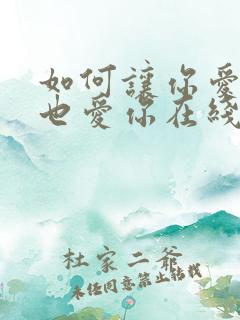 如何讓你愛
也愛你在綫
杜家二爺
未经同意禁止转载